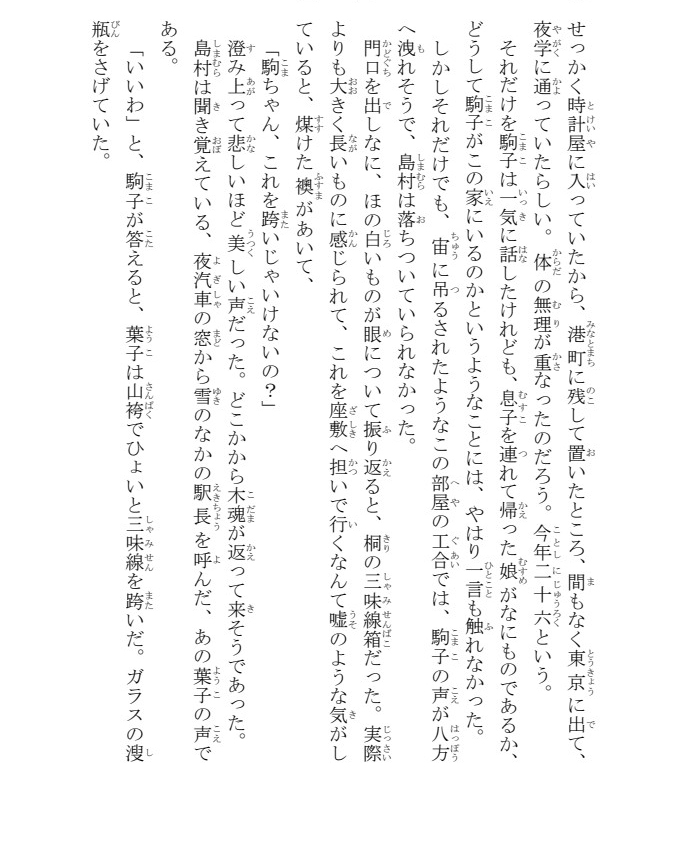 せっかく時計屋に入っていたから、港町に残して置いたところ、間もなく東京に出て、
夜学に通っていたらしい。体の無理が重なったのだろう。今年二十六という。
それだけを駒子は一気に話したけれども、息子を連れて帰った娘がなにものであるか、
どうして駒子がこの家にいるのかというようなことには、やはり一言も触れなかった。
しかしそれだけでも、宙に吊るされたようなこの部屋の工合では、駒子の声が八方
へ洩れそうで、島村は落ちついていられなかった。
門口を出しなに、ほの白いものが眼について振り返ると、桐の三味線箱だった。実際
よりも大きく長いものに感じられて、これを座敷へ担いで行くなんて嘘のような気がし
ていると、煤けた襖があいて、
「駒ちゃん、これを跨いじゃいけないの？」
澄み上って悲しいほど美しい声だった。どこかから木魂が返って来そうであった。
島村は聞き覚えている、夜汽車の窓から雪のなかの駅長を呼んだ、あの葉子の声で
ある。
「いいわ」と、駒子が答えると、葉子は山袴でひょいと三味線を跨いだ。ガラスの溲
瓶をさげていた。